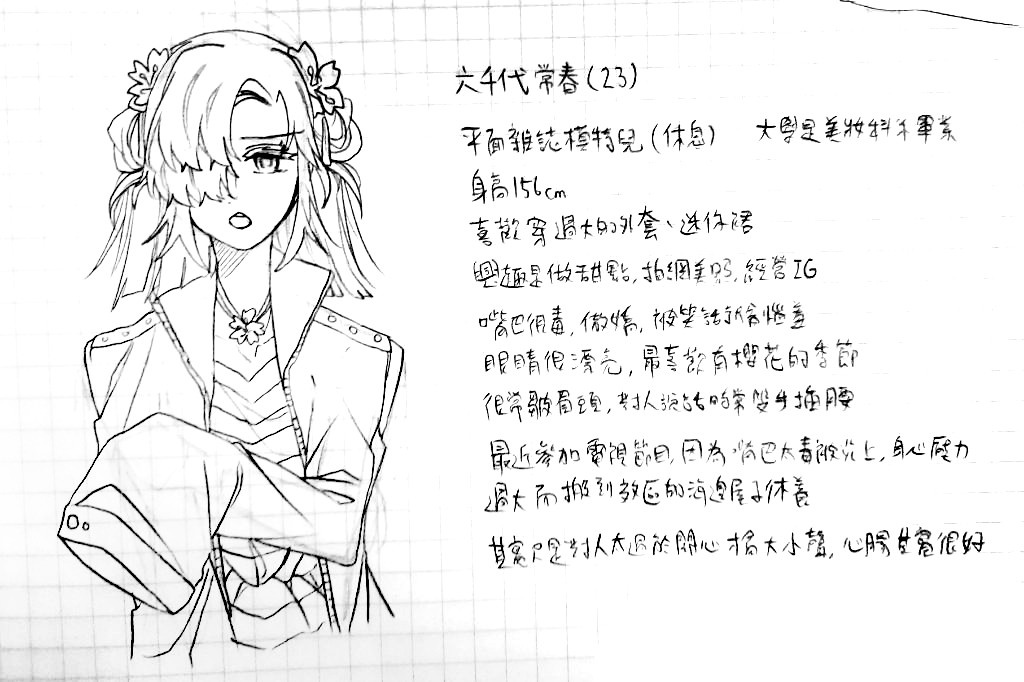 六千代常春(23)
平面雜誌模特兒(休息) 大學是美妝科木畢業
身高156cm
喜歡穿過大的外套、迷你裙
興趣是做甜點,拍網美照,經營IG
嘴巴很毒,傲嬌,被笑話新會惱羞
眼睛很漂亮,最喜歡有櫻花的季節
很常皺眉頭,對人說話時常雙手插腰
最近參加電視節目,因為嘴巴太毒被炎上,身心壓力
過大而搬到故區的海邊屋子休養
其實只是對人太過於關心才搞大小聲,心腸其實很好